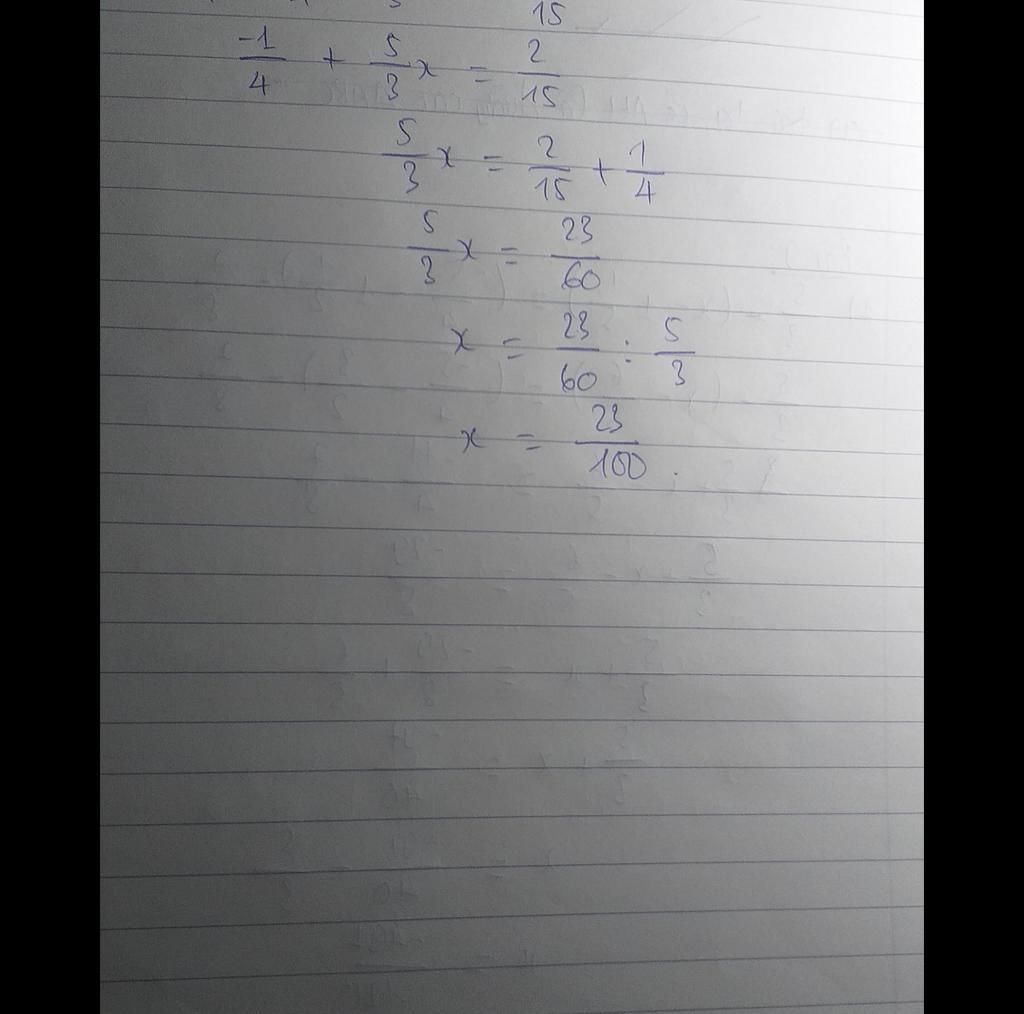 15
-1/4 + 5/3 x = 2/15
5/3 x = 2/15 + 1/4
5/3 x = 23/60
x = 23/60 : 5/3
x = 23/100.